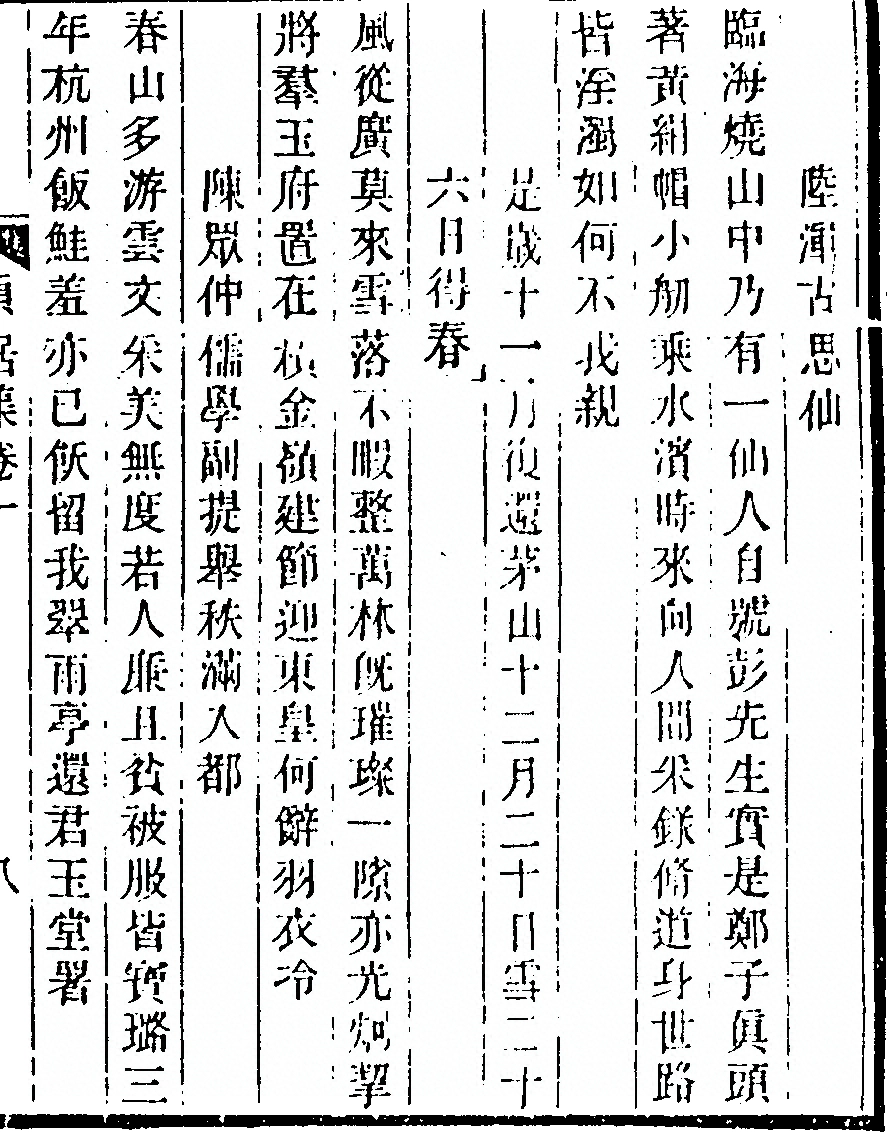 陸湏古思仙
臨海燒山中乃有一仙人自號彭先生實是鄭子眞頭
著黃絹帽小舠乘水濱時來向人間朵錄脩道身世路
皆淫濁如何不我親
是歲十一月復還茅山十二月二十日雪二十
六日得春
風從廣莫來雪落不暇整萬林旣璀璨一隙亦光炯挈
將羣玉府置在積金嶺建節迎東皇何辭羽衣冷
陳眾仲儒學副提舉秩滿入都
春山多游雲文朵美無度若人廉且貧被服皆寶璐三
年杭州飯鮭羞亦已飫留我翠雨亭還君玉堂署
貞居集卷一
八